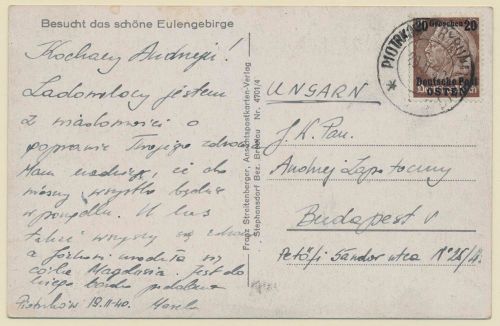 Besucht das schöne Eulengebirge
Kochany Andrzeju!
Zadowolony jestem
z wiadomości o
poprawie Twojego zdrowia
Mam nadzieję, że do
wiosny wszystko będzie
w porządku. U nas
także wszyscy są zdrowi
a Jóżkowi urodziła się
córka Magdosia. Jest do
niego bardzo podobna
Piotrków 19.II.40.
Franz Streitenberger, Ansichtspostkarten-Verlag
Stephansdorf Bez. Breslau Nr. 4701/4
PIOTRK
20 Groschen 20
Deutsche Post
OSTEN
UNGARN
J.W. Pan.
Andrzej Zapotoczny
Budapest V
Petőfi Sándor utca N°